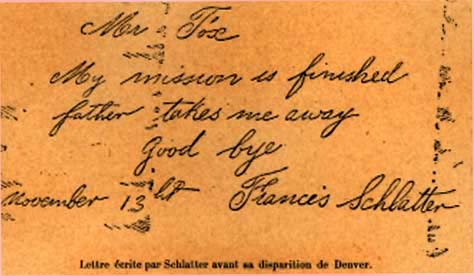 Mr Fox
My mission is finished
father takes me away
Good bye
November 13 Francis Schlatter
Lettre écrite par Schlatter avant sa disparition de Denver.